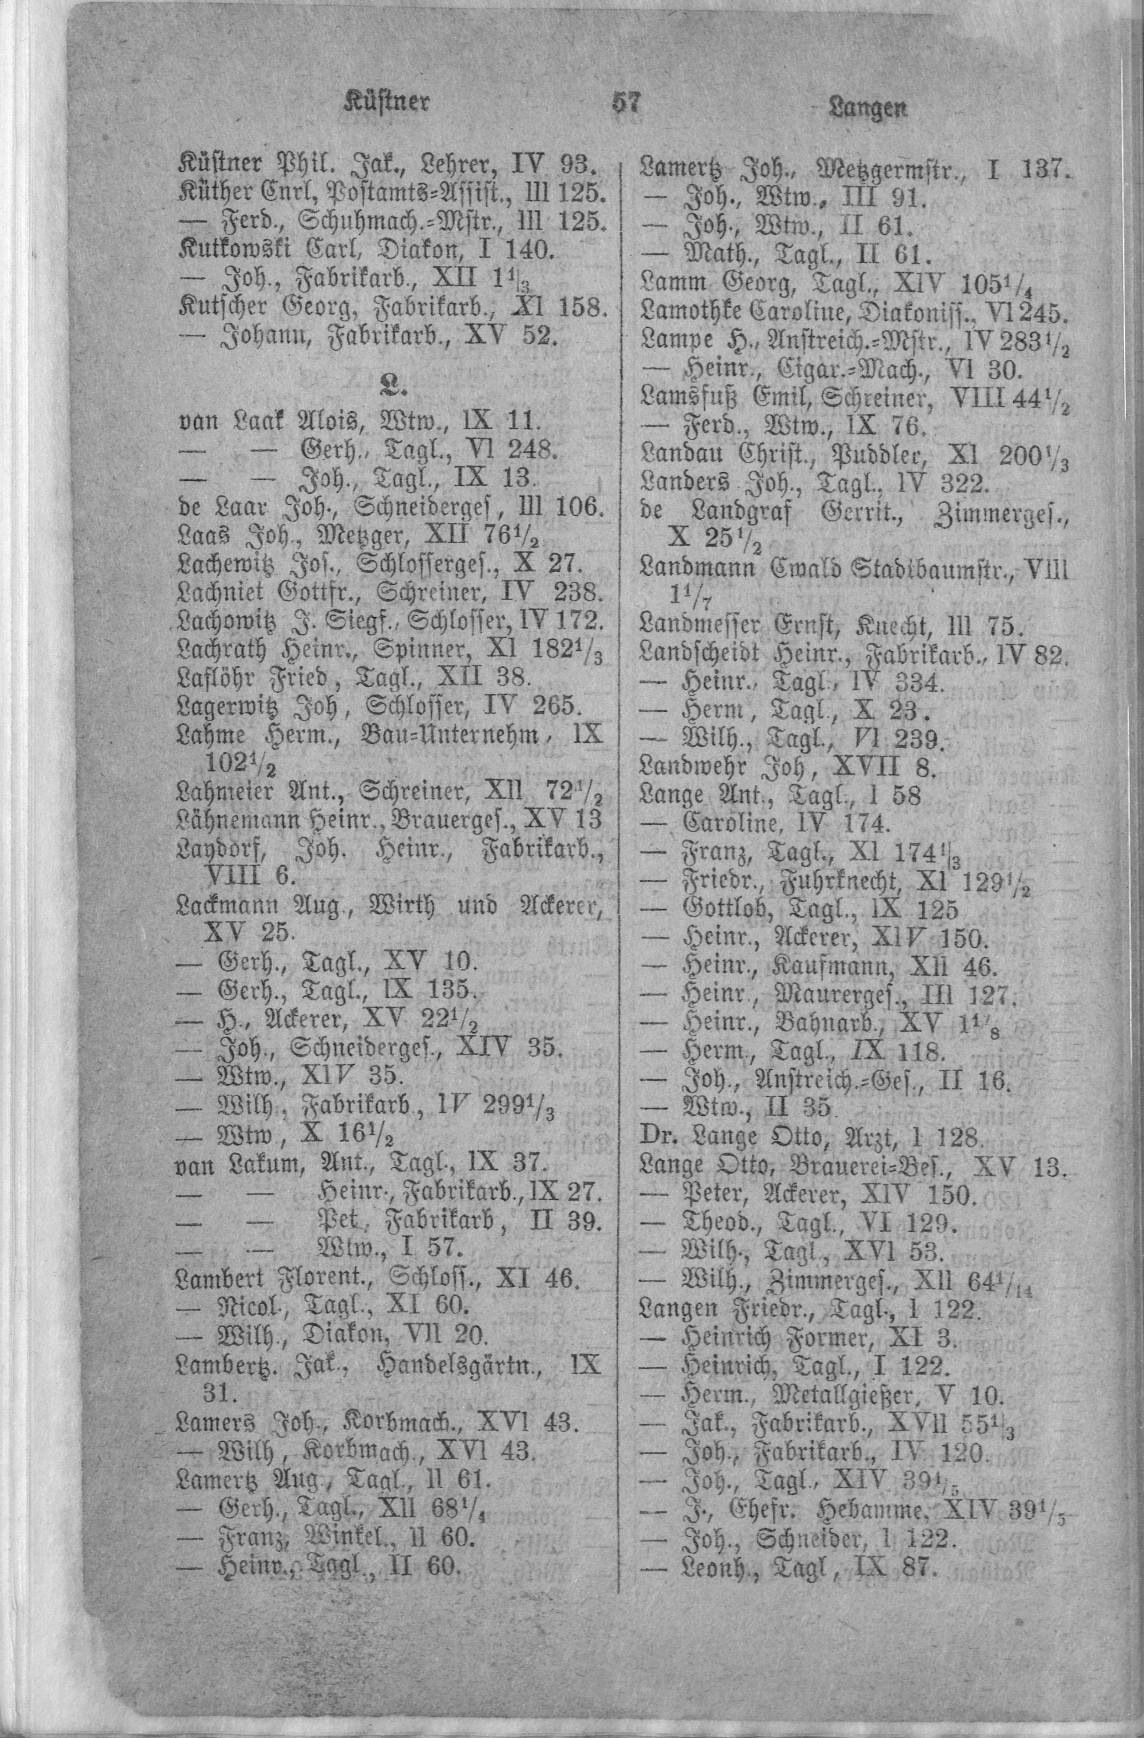 Küstner 57 Langen
Küstner Phil. Jak., Lehrer, IV 93.
Küther Curl, Postamts-Assist., III 125.
— Ferd., Schuhmach.-Mstr., III 125.
Kutkowski Carl, Diakon, I 140.
— Joh., Fabrikarb., XII 1 1/3
Kutscher Georg, Fabrikarb., XI 158.
— Johann, Fabrikarb., XV 52.
L.
van Laak Alois, Wtw., IX 11.
— — Gerh., Tagl., VI 248.
— — Joh., Tagl., IX 13.
de Laar Joh., Schneiderges, III 106.
Laas Joh., Metzger, XII 76 1/2
Lachewitz Jos., Schlosserges., X 27.
Lachniet Gottfr., Schreiner, IV 238.
Lachowitz J. Siegf., Schlosser, IV 172.
Lachrath Heinr., Spinner, XI 182 1/3
Laflöhr Fried, Tagl., XII 38.
Lagerwitz Joh, Schlosser, IV 265.
Lahme Herm., Bau-Unternehm, IX
102 1/2
Lahmeier Ant., Schreiner, XII 72 1/2
Lähnemann Heinr., Brauerges., XV 13
Laydorf, Joh. Heinr., Fabrikarb.,
VIII 6.
Lackmann Aug., Wirth und Ackerer,
XV 25.
— Gerh., Tagl., XV 10.
— Gerh., Tagl., IX 135.
— H., Ackerer, XV 22 1/2
— Joh., Schneiderges., XIV 35.
— Wtw., XIV 35.
— Wilh, Fabrikarb, IV 299 1/3
— Wtw, X 16 1/2
van Lakum, Ant., Tagl., IX 37.
— — Heinr., Fabrikarb., IX 27.
— — Pet, Fabrikarb, II 39.
— — Wtw., I 57.
Lambert Florent., Schloss., XI 46.
— Nicol., Tagl., XI 60.
— Wilh., Diakon, VII 20.
Lambertz. Jak., Handelsgärtn., IX
31.
Lamers Joh., Korbmach., XVI 43.
— Wilh, Korbmach., XVI 43.
Lamertz Aug, Tagl., II 61.
— Gerh., Tagl., XII 68 1/4
— Franz, Winkel., II 60.
— Heinr., Tagl., II 60.
Lamertz Joh., Metzgermstr., I 137.
— Joh., Wtw., III 91.
— Joh., Wtw., II 61.
— Math., Tagl., II 61.
Lamm Georg, Tagl., XIV 105 1/4
Lamothke Caroline, Diakoniss., VI 245.
Lampe H., Anstreich.-Mstr., IV 283 1/2
— Heinr., Cigar.-Mach., VI 30.
Lamsfuß Emil, Schreiner, VIII 44 1/2
— Ferd., Wtw., IX 76.
Landau Christ., Puddler, XI 200 1/3
Landers Joh., Tagl., IV 322.
de Landgraf Gerrit., Zimmerges.,
X 25 1/2
Landmann Ewald Stadtbaumstr., VIII
1 1/7
Landmesser Ernst, Knecht, III 75.
Landscheidt Heinr., Fabrikarb., IV 82.
— Heinr., Tagl., IV 334.
— Herm, Tagl., X 23.
— Wilh., Tagl., VI 239.
Landwehr Joh, XVII 8.
Lange Ant., Tagl., I 58
— Caroline, IV 174.
— Franz, Tagl., XI 174 1/3
— Friedr., Fuhrknecht, XI 129 1/2
— Gottlob, Tagl., IX 125
— Heinr., Ackerer, XIV 150.
— Heinr., Kaufmann, XII 46.
— Heinr., Maurerges., III 127.
— Heinr., Bahnarb., XV 1 1/8
— Herm., Tagl., IX 118.
— Joh., Anstreich.-Ges., II 16.
— Wtw., II 35
Dr. Lange Otto, Arzt, I 128.
Lange Otto, Brauerei-Bes., XV 13.
— Peter, Ackerer, XIV 150.
— Theod., Tagl., VI 129.
— Wilh., Tagl., XVI 53.
— Wilh., Zimmerges., XII 64 1/14
Langen Friedr., Tagl., I 122.
— Heinrich Former, XI 3.
— Heinrich, Tagl., I 122.
— Herm., Metallgießer, V 10.
— Jak., Fabrikarb., XVII 55 1/3
— Joh., Fabrikarb., IV 120.
— Joh., Tagl., XIV 39 1/5
— J., Ehefr. Hebamme, XIV 39 1/5
— Joh., Schneider, I 122.
— Leonh., Tagl, IX 87.